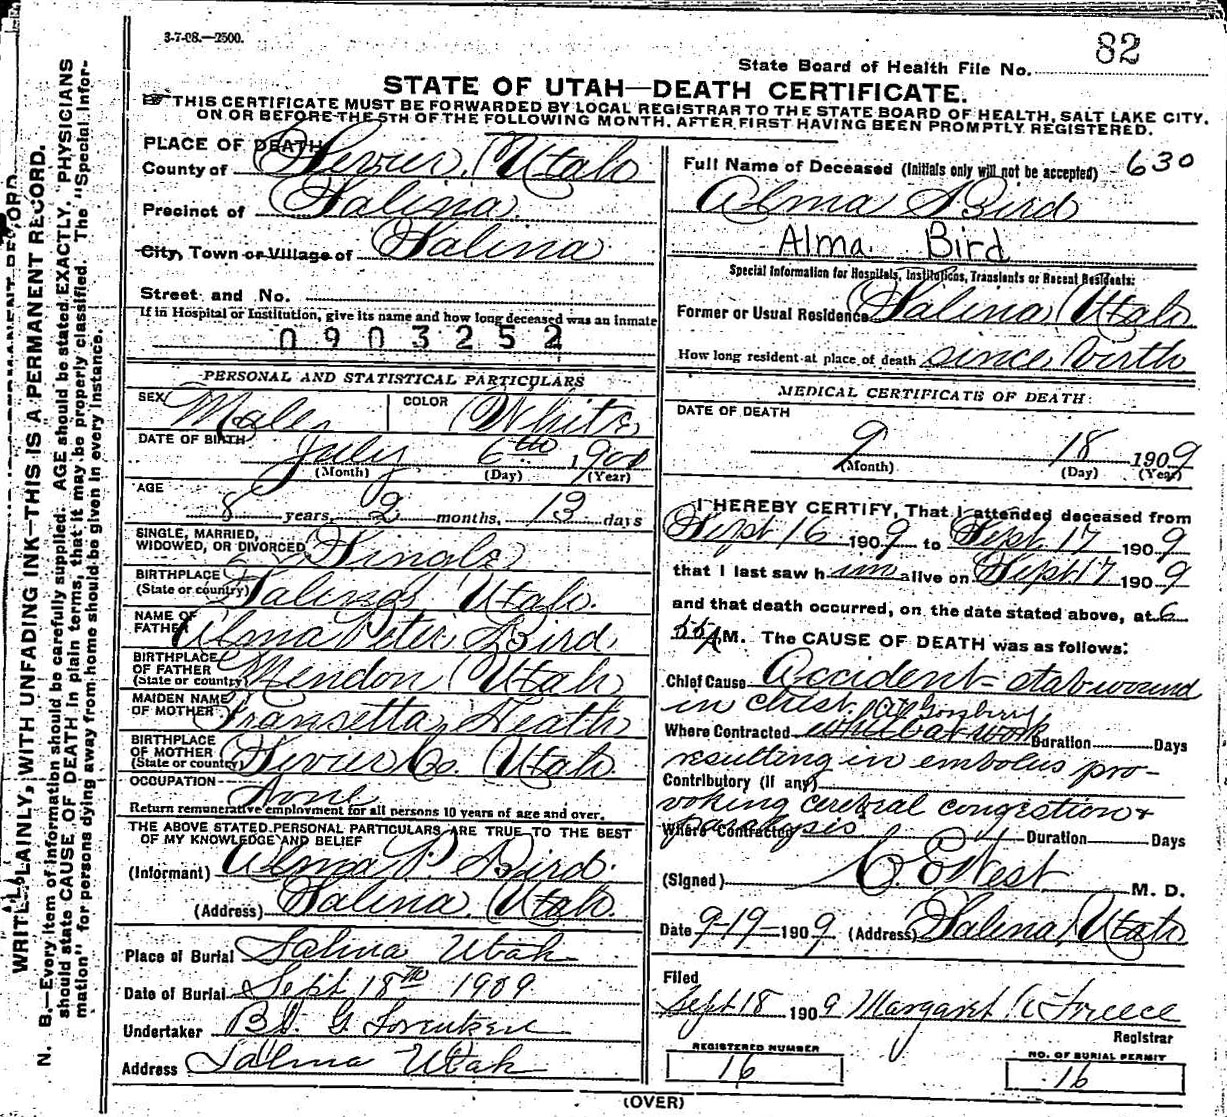 3-7-08.—2500.
82
State Board of Health File No.
STATE OF UTAH—DEATH CERTIFICATE.
THIS CERTIFICATE MUST BE FORWARDED BY LOCAL REGISTRAR TO THE STATE BOARD OF HEALTH, SALT LAKE CITY,
ON OR BEFORE THE 5TH OF THE FOLLOWING MONTH, AFTER FIRST HAVING BEEN PROMPTLY REGISTERED.
PLACE OF DEATH
County of Sevier, Utah
Precinct of Salina
City, Town or Village of Salina
Street and No.
If in Hospital or Institution, give its name and how long deceased was an inmate
0903252
PERSONAL AND STATISTICAL PARTICULARS
SEX Male COLOR White
DATE OF BIRTH July 6th 1901
(Month) (Day) (Year)
AGE
8 years, 2 months, 13 days
SINGLE, MARRIED,
WIDOWED, OR DIVORCED Single
BIRTHPLACE
(State or country) Salina Utah.
NAME OF
FATHER Alma Peter Bird
BIRTHPLACE
OF FATHER
(State or country) Mendon Utah
MAIDEN NAME
OF MOTHER Fransetta Heath
BIRTHPLACE
OF MOTHER
(State or country) Sevier Co. Utah.
OCCUPATION None
Return remunerative employment for all persons 10 years of age and over.
THE ABOVE STATED PERSONAL PARTICULARS ARE TRUE TO THE BEST
OF MY KNOWLEDGE AND BELIEF
(Informant) Alma P. Bird.
(Address) Salina, Utah.
Place of Burial Salina Utah
Date of Burial Sept 18th 1909
Undertaker G. Lorentzen
Address Salina Utah
Full Name of Deceased (Initials only will not be accepted) 630
Alma Bird
Alma Bird
Special Information for Hospitals, Institutions, Transients or Recent Residents:
Former or Usual Residence Salina, Utah
How long resident at place of death since birth
MEDICAL CERTIFICATE OF DEATH
DATE OF DEATH
9 18 1909
(Month) (Day) (Year)
I HEREBY CERTIFY, That I attended deceased from
Sept 16 1909 to Sept 17 1909
that I last saw him alive on Sept 17 1909
and that death occurred, on the date stated above, at 6
55 A M. The CAUSE OF DEATH was as follows:
Chief Cause Accident - stab wound
in chest.
Where Contracted Duration Days
resulting in embolus pro-
Contributory (if any)
voking cerebral congestion &
paralysis
Where Contracted Duration Days
(Signed) C. E. West M. D.
Date 9-19-1909 (Address) Salina, Utah
Filed
Sept 18 1909 Margaret Freece
Registrar
REGISTERED NUMBER
16
NO. OF BURIAL PERMIT
16
(OVER)
WRITE PLAINLY, WITH UNFADING INK—THIS IS A PERMANENT RECORD.
N. B.—Every item of information should be carefully supplied. AGE should be stated EXACTLY. PHYSICIANS
should state CAUSE OF DEATH in plain terms, that it may be properly classified. The "Special Infor-
mation" for persons dying away from home should be given in every instance.